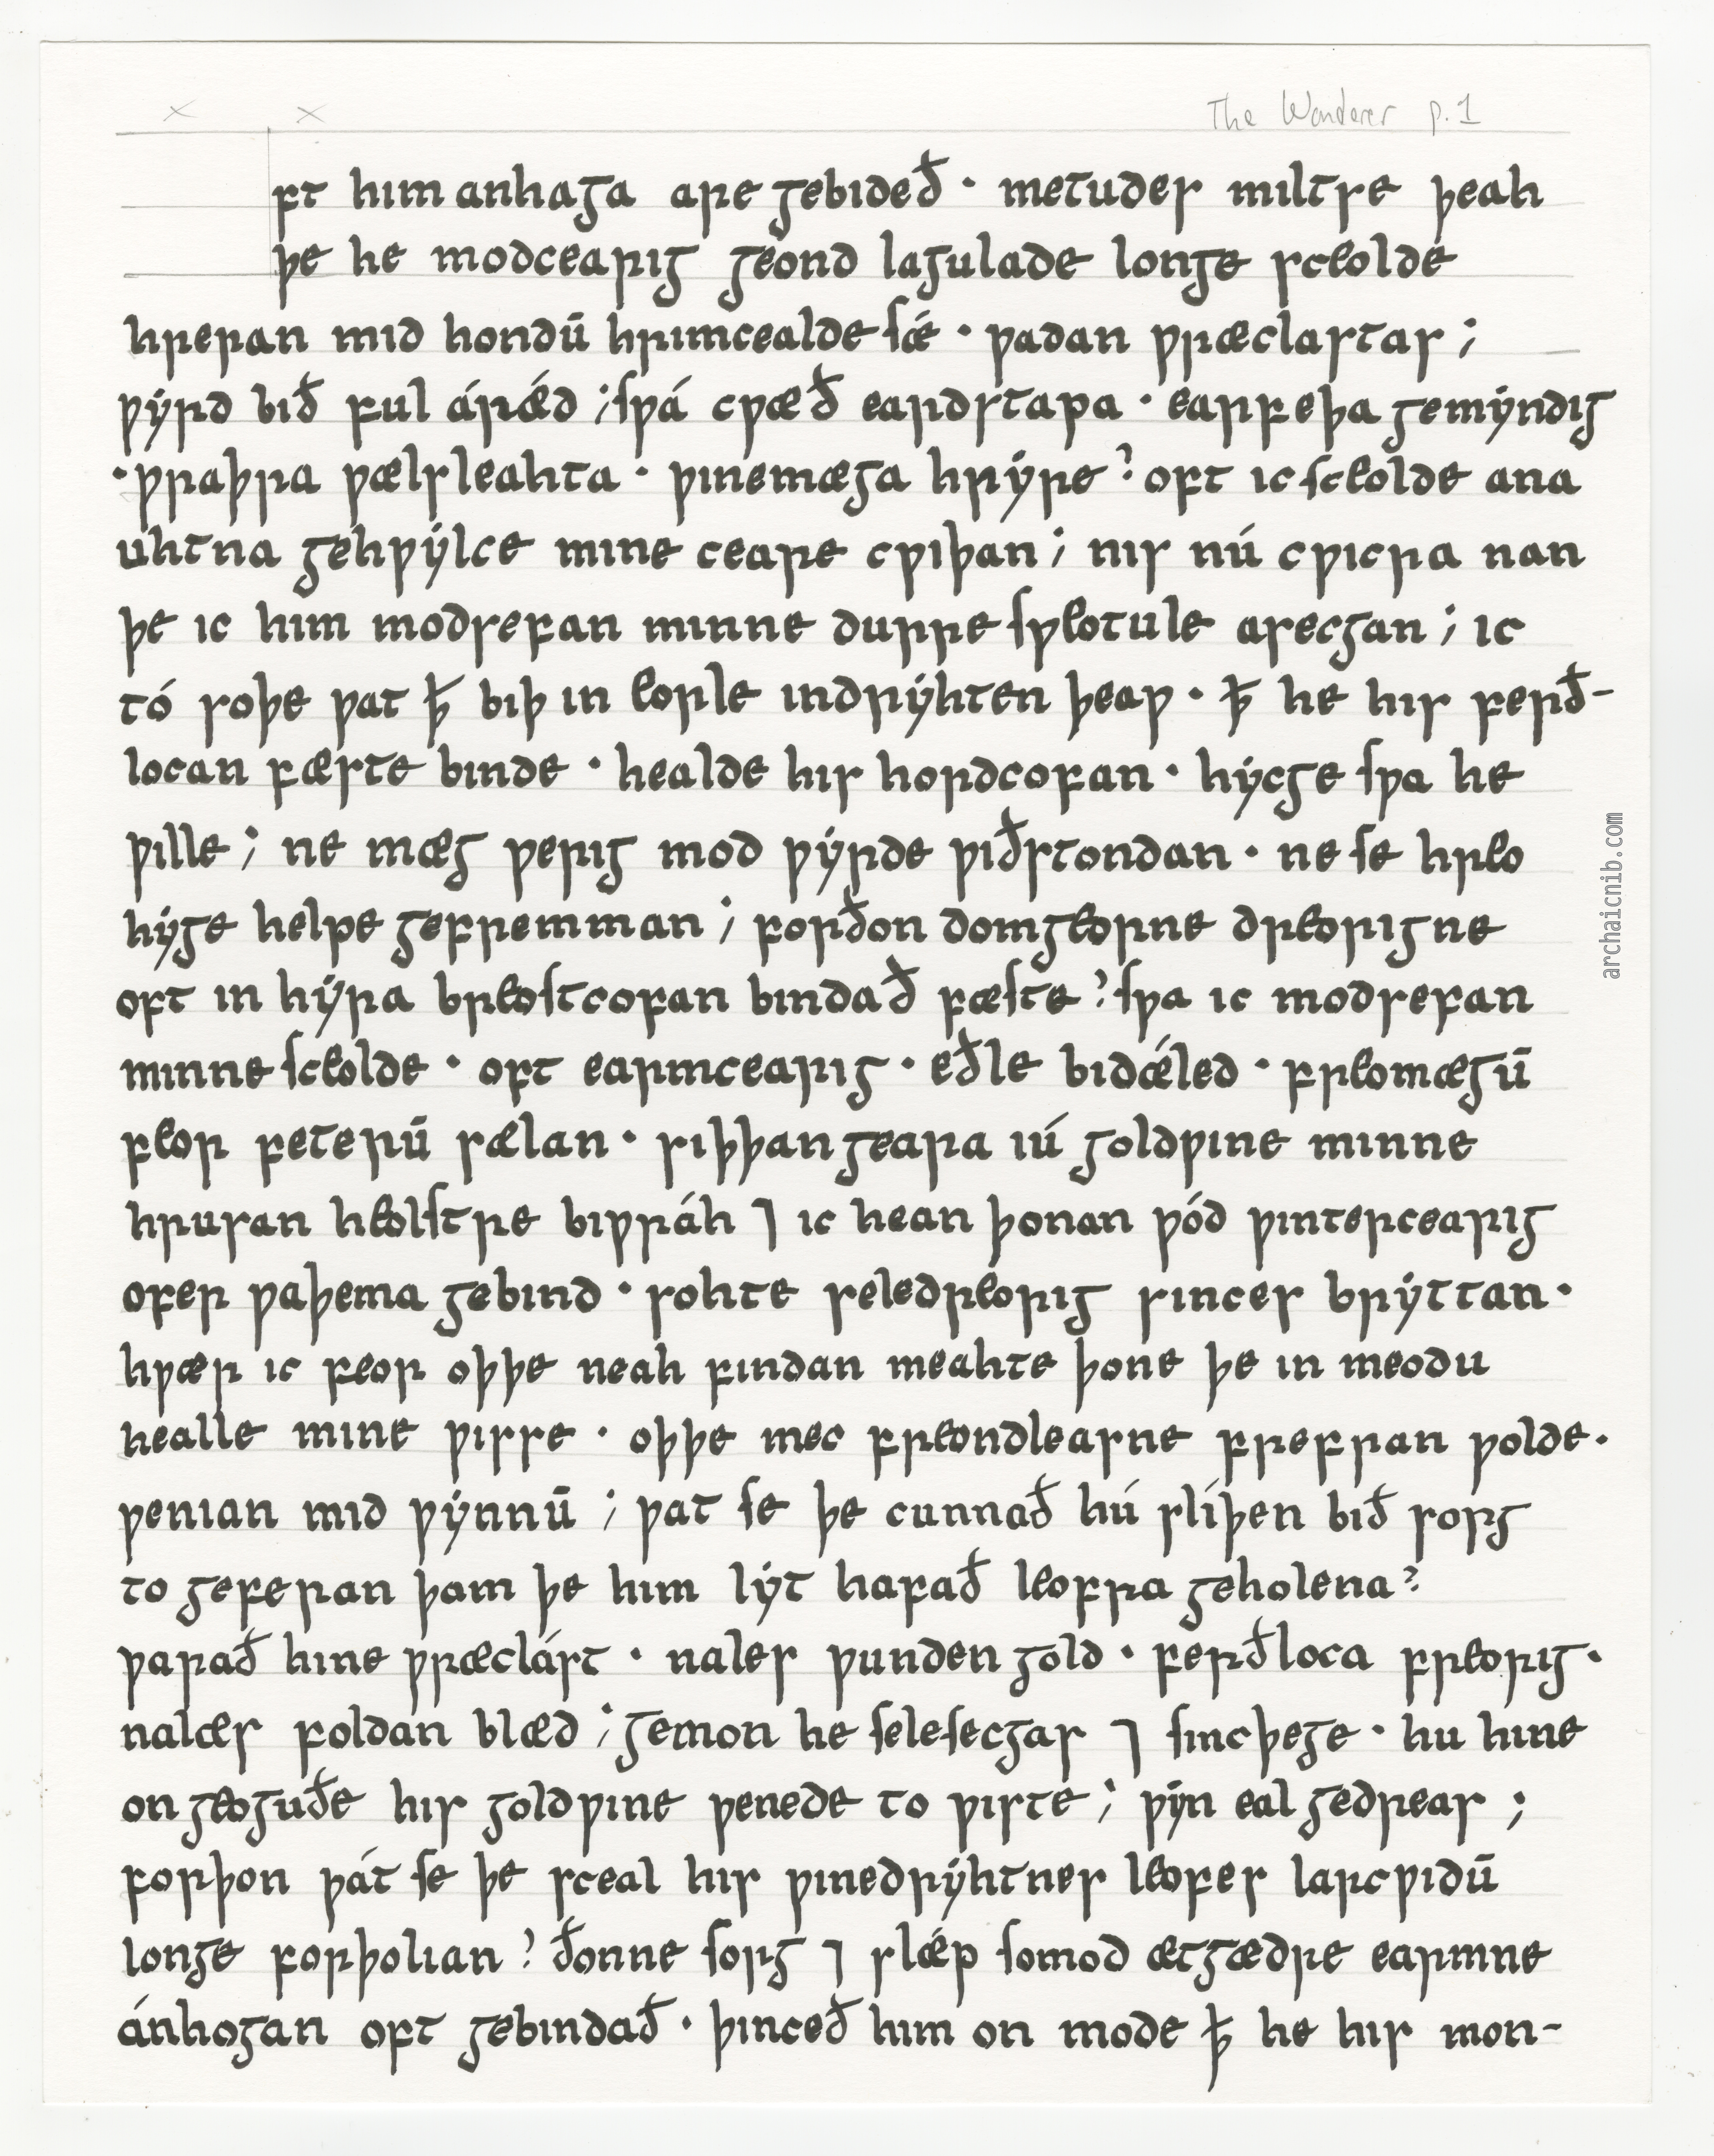 The Wanderer p.1
ft him anhaga are gebideð · metudes miltse þeah
þe he modcearig geond lagulade longe sceolde
hreran mid hondū hrimcealde ſǽ · ƿadan ƿræclastas ;
ƿẏrd bið ful árǽd ; ſƿá cƿæð eardstapa · earfeþa gemẏndig
· ƿraþra ƿælsleahta · ƿinemæga hrẏre ? oft ic ſceolde ana
uhtna gehƿẏlce mine ceare cƿiþan ; nis nú cƿicra nan
þe ic him modsefan minne durre ſƿeotule asecgan ; ic
tó soþe ƿat ꝥ biþ in eorle indrẏhten þeaƿ · ꝥ he his ferð-
locan fæste binde · healde his hordcofan · hẏcge ſƿa he
ƿille ; ne mæg ƿerig mod ƿẏrde ƿiðstondan · ne ſe hreo
hẏge helpe gefremman ; forðon domgeorne dreorigne
oft in hẏra breoſtcofan bindað fæſte ? ſƿa ic modsefan
minne ſceolde · oft earmcearig · eðle bidǽled · freomægū
feor feterū sælan · siþþan geara iú goldƿine minne
hrusan heolſtre biƿráh ⁊ ic hean þonan ƿód ƿintercearig
ofer ƿaþema gebind · sohte seledreorig sinces brẏttan ·
hƿær ic feor oþþe neah findan meahte þone þe in meodu
healle mine ƿisse · oþþe mec freondleasne frefran ƿolde ·
ƿenian mid ƿẏnnū ; ƿat ſe þe cunnað hú slíþen bið sorg
to geferan þam þe him lẏt hafað leofra geholena ?
ƿarað hine ƿræclást · nales ƿunden gold · ferðloca freorig ·
nalæs foldan blæd ; gemon he ſeleſecgas ⁊ ſincþege · hu hine
on geoguðe his goldƿine ƿenede to ƿiste ; ƿẏn eal gedreas ;
forþon ƿát ſe þe sceal his ƿinedrẏhtnes leofes larcƿidū
longe forþolian ? ðonne ſorg ⁊ slǽp ſomod ætgædre earmne
ánhogan oft gebindað · þinceð him on mode ꝥ he his mon-
archaicnib.com